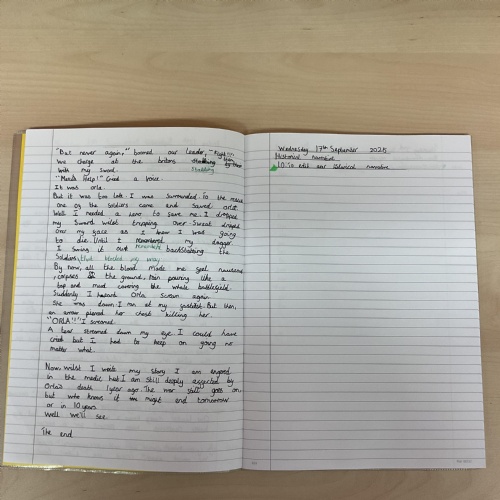 "But never again," boomed our leader, "Fight!!!"
We charge at the britons stabbing them
with my sword. stabbing
"Mands Help!" Cried a voice.
It was orla.
But it was too late. I was surrounded. To the
one of the soldiers came and saved orla.
Well I needed a hero to save me. I dropped
my sword whilst tripping over. Sweat dripped
over my face as I knew I was going
to die. Until I remembered my dagger.
I swing it out backstabbing the
Soldiers, that blocked my way
By now, all the blood made me feel nauseous
, corpses the ground, rain pouring like a
tap and mud covering the whole battlefield.
Suddenly I heard Orla scream again.
She was down. I ran at my But then,
an arrow pierced her chest killing her.
"ORLA'!" I screamed.
A tear streamed down my eye. I could have
cried but I had to keep on going no
matter what.
Now, whilst I write my story I am
in the medic hut. I am still deeply affected by
Orla's death 1 year ago. The war still goes on,
but who knows it might end tomorrow
or in 10 years.
Well we'll see.
The end
Wednesday 17th September 2025
Historical narrative
LO: To edit our historical narrative